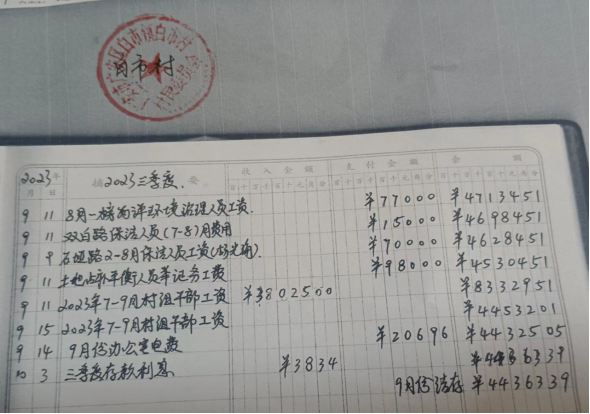 白市村
2023年 摘 2023三季度. 要 收入金额 支付金额 余额
月 日 百十万千百十元角分 百十万千百十元角分 百十万千百十元角分
9 11 8月 ¥77000 ¥4713451
9 11 双白路保洁人员(7-8)月费用 ¥15000 ¥4698451
9 9 石垭路2-8月保洁人员工资 ¥70000 ¥4628451
9 11 土地占补平衡人员笔记务工费 ¥98000 ¥4530451
9 11 2023年7-9月村组干部工资 ¥3802500 ¥8332951
9 15 2023年7-9月村组干部工资 ¥4453201
9 14 9月份办公室电费 ¥20696 ¥4432505
10 3 三季度存款利息 ¥3834 ¥4436339
9月份结存 ¥4436339